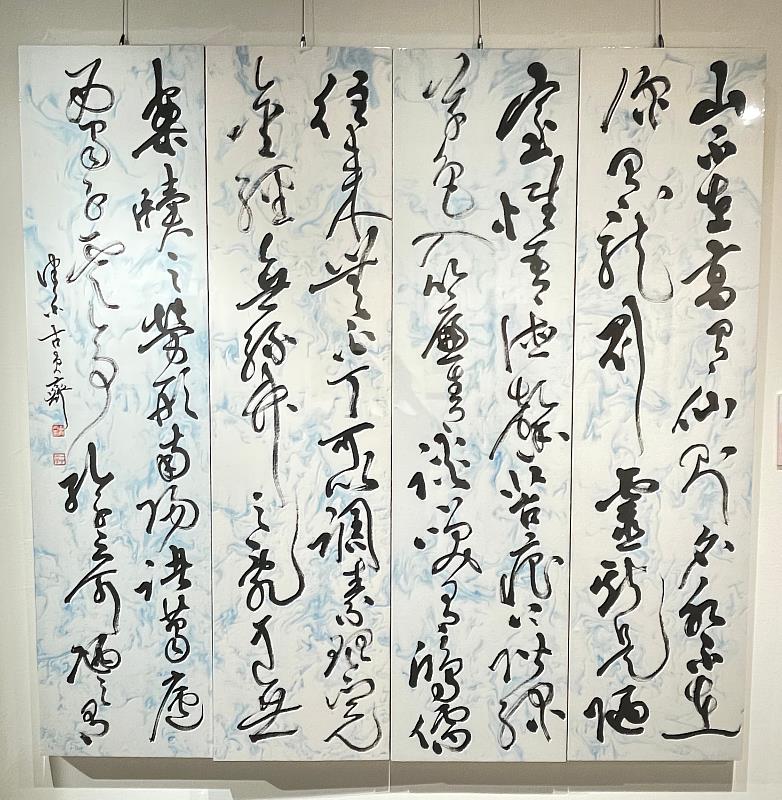 山不在高有仙則名水不在
深有龍則靈斯是陋
室惟吾德馨苔痕上階綠
草色入簾青談笑有鴻儒
往來無白丁可以調素琴閱
金經無絲竹之亂耳無
案牘之勞形南陽諸葛廬
西蜀子雲亭孔子云何陋之有